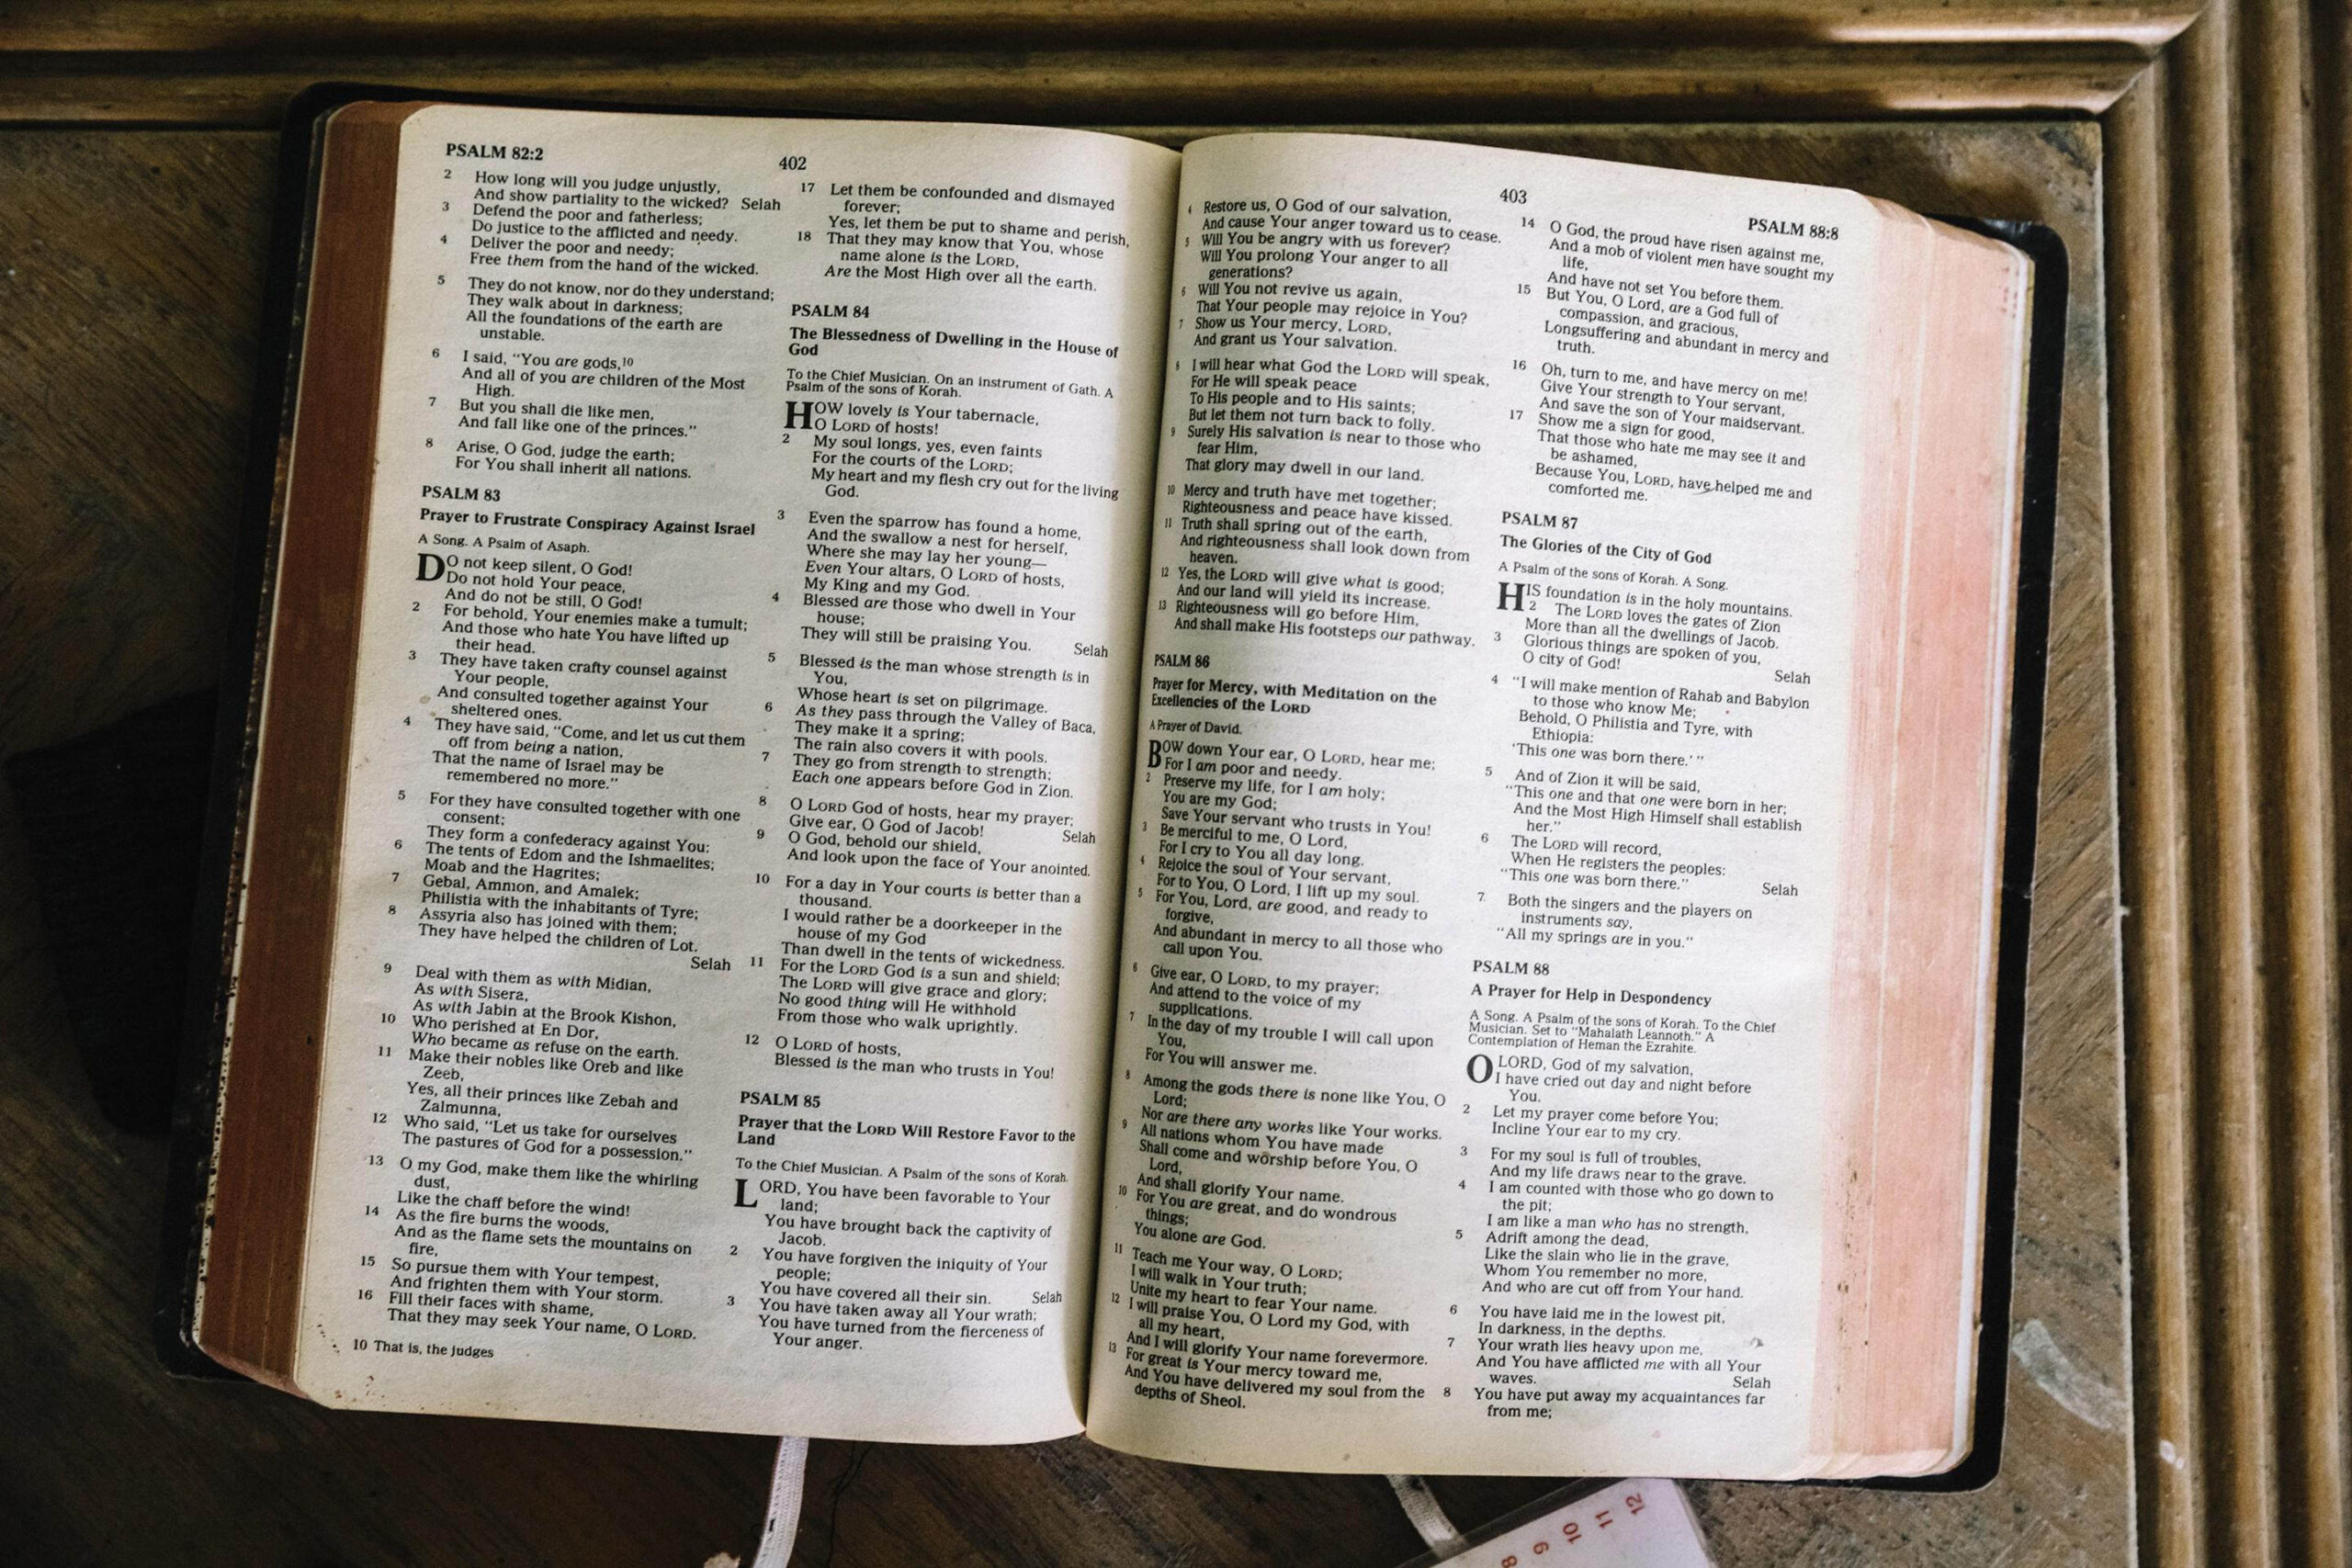 PSALM 82:2
402
2 How long will you judge unjustly,
And show partiality to the wicked? Selah
3 Defend the poor and fatherless;
Do justice to the afflicted and needy.
4 Deliver the poor and needy;
Free them from the hand of the wicked.
5 They do not know, nor do they understand;
They walk about in darkness;
All the foundations of the earth are
unstable.
6 I said, "You are gods,10
And all of you are children of the Most
High.
7 But you shall die like men,
And fall like one of the princes."
8 Arise, O God, judge the earth;
For You shall inherit all nations.
PSALM 83
Prayer to Frustrate Conspiracy Against Israel
A Song. A Psalm of Asaph.
DO not keep silent, O God!
Do not hold Your peace,
And do not be still, O God!
2 For behold, Your enemies make a tumult;
And those who hate You have lifted up
their head.
3 They have taken crafty counsel against
Your people,
And consulted together against Your
sheltered ones.
4 They have said, "Come, and let us cut them
off from being a nation,
That the name of Israel may be
remembered no more."
5 For they have consulted together with one
consent;
They form a confederacy against You:
6 The tents of Edom and the Ishmaelites;
Moab and the Hagrites;
7 Gebal, Ammon, and Amalek;
Philistia with the inhabitants of Tyre;
8 Assyria also has joined with them;
They have helped the children of Lot.
Selah
9 Deal with them as with Midian,
As with Sisera,
As with Jabin at the Brook Kishon,
10 Who perished at En Dor,
Who became as refuse on the earth.
11 Make their nobles like Oreb and like
Zeeb,
Yes, all their princes like Zebah and
Zalmunna,
12 Who said, "Let us take for ourselves
The pastures of God for a possession."
13 O my God, make them like the whirling
dust,
Like the chaff before the wind!
14 As the fire burns the woods,
And as the flame sets the mountains on
fire,
15 So pursue them with Your tempest,
And frighten them with Your storm.
16 Fill their faces with shame,
That they may seek Your name, O LORD.
10 That is, the judges
17 Let them be confounded and dismayed
forever;
Yes, let them be put to shame and perish,
18 That they may know that You, whose
name alone is the LORD,
Are the Most High over all the earth.
PSALM 84
The Blessedness of Dwelling in the House of
God
To the Chief Musician. On an instrument of Gath. A
Psalm of the sons of Korah.
HOW lovely is Your tabernacle,
O LORD of hosts!
2 My soul longs, yes, even faints
For the courts of the LORD;
My heart and my flesh cry out for the living
God.
3 Even the sparrow has found a home,
And the swallow a nest for herself,
Where she may lay her young—
Even Your altars, O LORD of hosts,
My King and my God.
4 Blessed are those who dwell in Your
house;
They will still be praising You. Selah
5 Blessed is the man whose strength is in
You,
Whose heart is set on pilgrimage.
6 As they pass through the Valley of Baca,
They make it a spring;
The rain also covers it with pools.
7 They go from strength to strength;
Each one appears before God in Zion.
8 O LORD God of hosts, hear my prayer;
Give ear, O God of Jacob! Selah
9 O God, behold our shield,
And look upon the face of Your anointed.
10 For a day in Your courts is better than a
thousand.
I would rather be a doorkeeper in the
house of my God
Than dwell in the tents of wickedness.
11 For the LORD God is a sun and shield;
The LORD will give grace and glory;
No good thing will He withhold
From those who walk uprightly.
12 O LORD of hosts,
Blessed is the man who trusts in You!
PSALM 85
Prayer that the LORD Will Restore Favor to the
Land
To the Chief Musician. A Psalm of the sons of Korah.
LORD, You have been favorable to Your
land;
You have brought back the captivity of
Jacob.
2 You have forgiven the iniquity of Your
people;
You have covered all their sin. Selah
3 You have taken away all Your wrath;
You have turned from the fierceness of
Your anger.
403
PSALM 88:8
4 Restore us, O God of our salvation,
And cause Your anger toward us to cease.
5 Will You be angry with us forever?
Will You prolong Your anger to all
generations?
6 Will You not revive us again,
That Your people may rejoice in You?
7 Show us Your mercy, LORD,
And grant us Your salvation.
8 I will hear what God the LORD will speak,
For He will speak peace
To His people and to His saints;
But let them not turn back to folly.
9 Surely His salvation is near to those who
fear Him,
That glory may dwell in our land.
10 Mercy and truth have met together;
Righteousness and peace have kissed.
11 Truth shall spring out of the earth,
And righteousness shall look down from
heaven.
12 Yes, the LORD will give what is good;
And our land will yield its increase.
13 Righteousness will go before Him,
And shall make His footsteps our pathway.
PSALM 86
Prayer for Mercy, with Meditation on the
Excellencies of the LORD
A Prayer of David.
BOW down Your ear, O LORD, hear me;
For I am poor and needy.
2 Preserve my life, for I am holy;
You are my God;
Save Your servant who trusts in You!
3 Be merciful to me, O Lord,
For I cry to You all day long.
4 Rejoice the soul of Your servant,
For to You, O Lord, I lift up my soul.
5 For You, Lord, are good, and ready to
forgive,
And abundant in mercy to all those who
call upon You.
6 Give ear, O LORD, to my prayer;
And attend to the voice of my
supplications.
7 In the day of my trouble I will call upon
You,
For You will answer me.
8 Among the gods there is none like You, O
Lord;
Nor are there any works like Your works.
9 All nations whom You have made
Shall come and worship before You, O
Lord,
And shall glorify Your name.
10 For You are great, and do wondrous
things;
You alone are God.
11 Teach me Your way, O LORD;
I will walk in Your truth;
Unite my heart to fear Your name.
12 I will praise You, O Lord my God, with
all my heart,
And I will glorify Your name forevermore.
13 For great is Your mercy toward me,
And You have delivered my soul from the
depths of Sheol.
14 O God, the proud have risen against me,
And a mob of violent men have sought my
life,
And have not set You before them.
15 But You, O Lord, are a God full of
compassion, and gracious,
Longsuffering and abundant in mercy and
truth.
16 Oh, turn to me, and have mercy on me!
Give Your strength to Your servant,
And save the son of Your maidservant.
17 Show me a sign for good,
That those who hate me may see it and
be ashamed,
Because You, LORD, have helped me and
comforted me.
PSALM 87
The Glories of the City of God
A Psalm of the sons of Korah. A Song.
HIS foundation is in the holy mountains.
2 The LORD loves the gates of Zion
More than all the dwellings of Jacob.
3 Glorious things are spoken of you,
O city of God!
Selah
4 "I will make mention of Rahab and Babylon
to those who know Me;
Behold, O Philistia and Tyre, with
Ethiopia:
'This one was born there.' "
5 And of Zion it will be said,
"This one and that one were born in her;
And the Most High Himself shall establish
her."
6 The LORD will record,
When He registers the peoples:
"This one was born there." Selah
7 Both the singers and the players on
instruments say,
"All my springs are in you."
PSALM 88
A Prayer for Help in Despondency
A Song. A Psalm of the sons of Korah. To the Chief
Musician. Set to "Mahalath Leannoth." A
Contemplation of Heman the Ezrahite.
O LORD, God of my salvation,
I have cried out day and night before
You.
2 Let my prayer come before You;
Incline Your ear to my cry.
3 For my soul is full of troubles,
And my life draws near to the grave.
4 I am counted with those who go down to
the pit;
I am like a man who has no strength,
5 Adrift among the dead,
Like the slain who lie in the grave,
Whom You remember no more,
And who are cut off from Your hand.
6 You have laid me in the lowest pit,
In darkness, in the depths.
7 Your wrath lies heavy upon me,
And You have afflicted me with all Your
waves. Selah
8 You have put away my acquaintances far
from me;
8 9 10 11 12